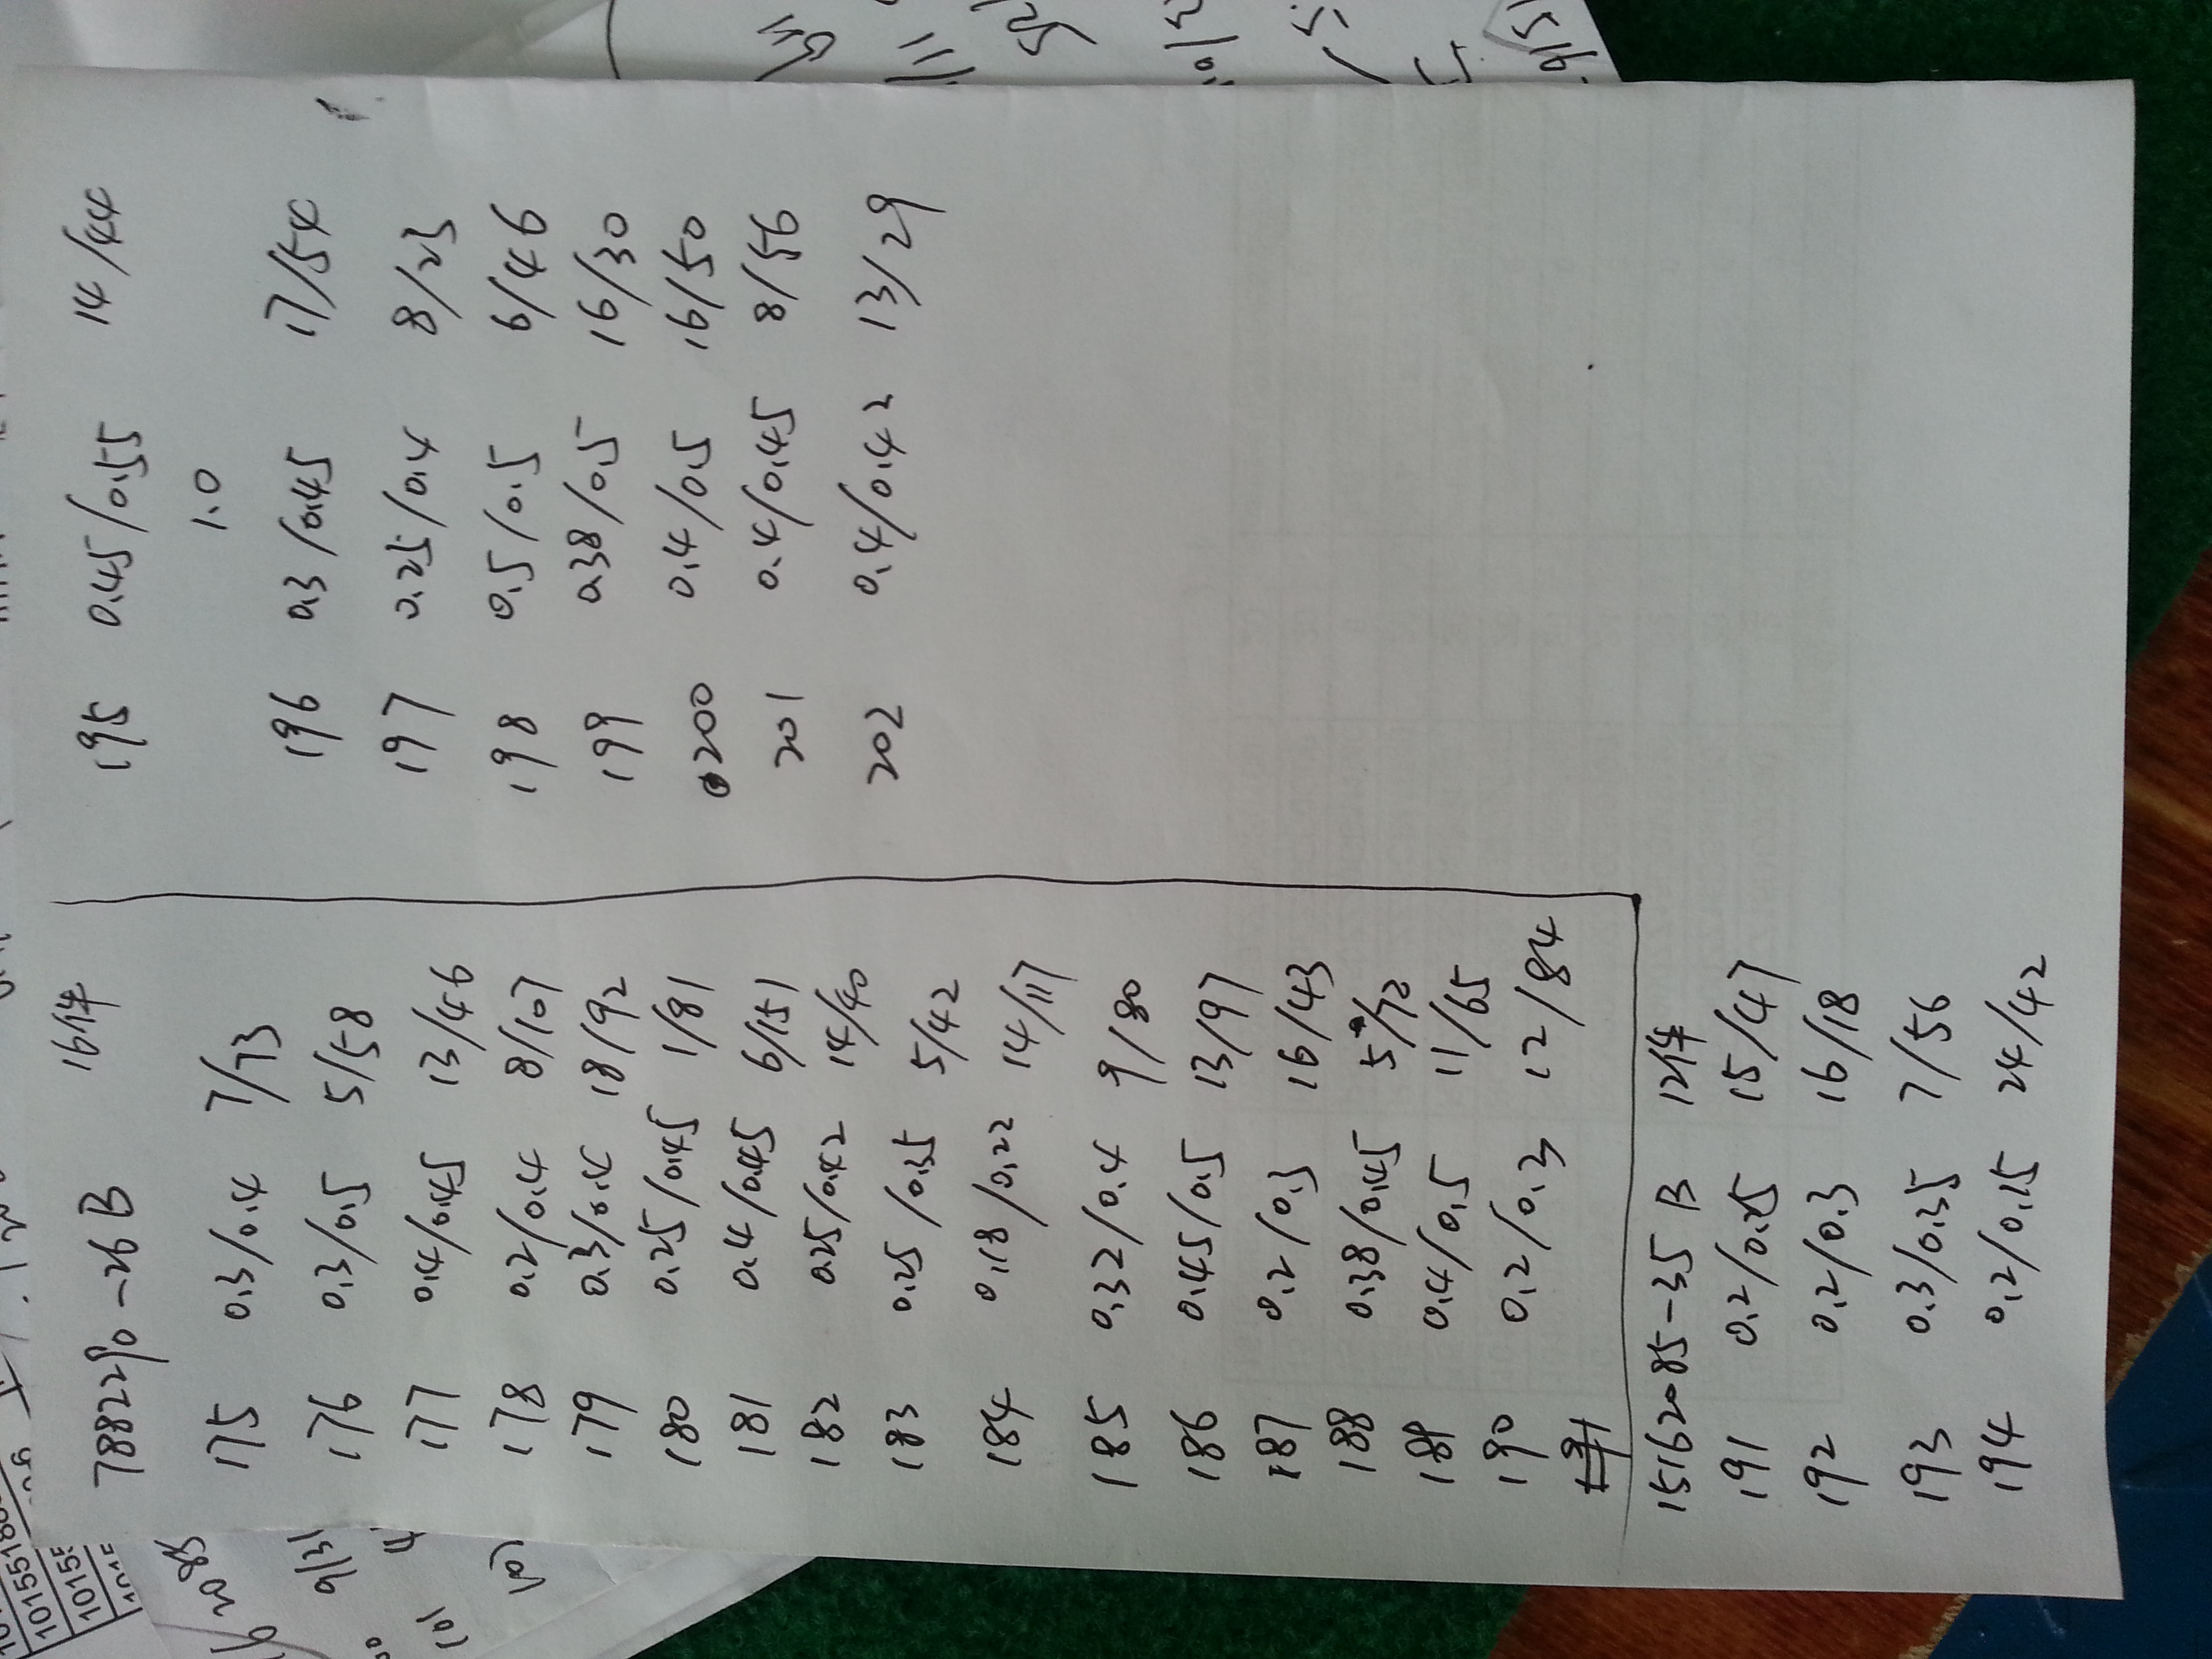 788290-26B 16件
175 0.3/0.4 7/73
176 0.3/0.5 5/58
177 0.4/0.45 13/46
178 0.2/0.4 8/107
179 0.3/0.4 18/92
180 0.25/0.45 1/81
181 0.4/0.45 6/151
182 0.25/0.42 14/40
183 0.25/0.35 5/42
184 0.18/0.22 14/117
185 0.32/0.4 9/80
186 0.45/0.5 13/97
187 0.2/0.3 16/43
188 0.38/0.45 5/72
189 0.4/0.5 11/65
190 0.2/0.3 12/84
15162085-35B 12件
191 0.2/0.25 15/47
192 0.2/0.3 16/18
193 0.3/0.35 7/56
194 0.2/0.15 24/42
195 0.45/0.55 14/44
1.0
196 0.3/0.45 17/54
197 0.25/0.4 8/23
198 0.5/0.5 6/46
199 0.38/0.5 16/30
200 0.4/0.5 16/50
201 0.4/0.45 8/56
202 0.4/0.42 13/29